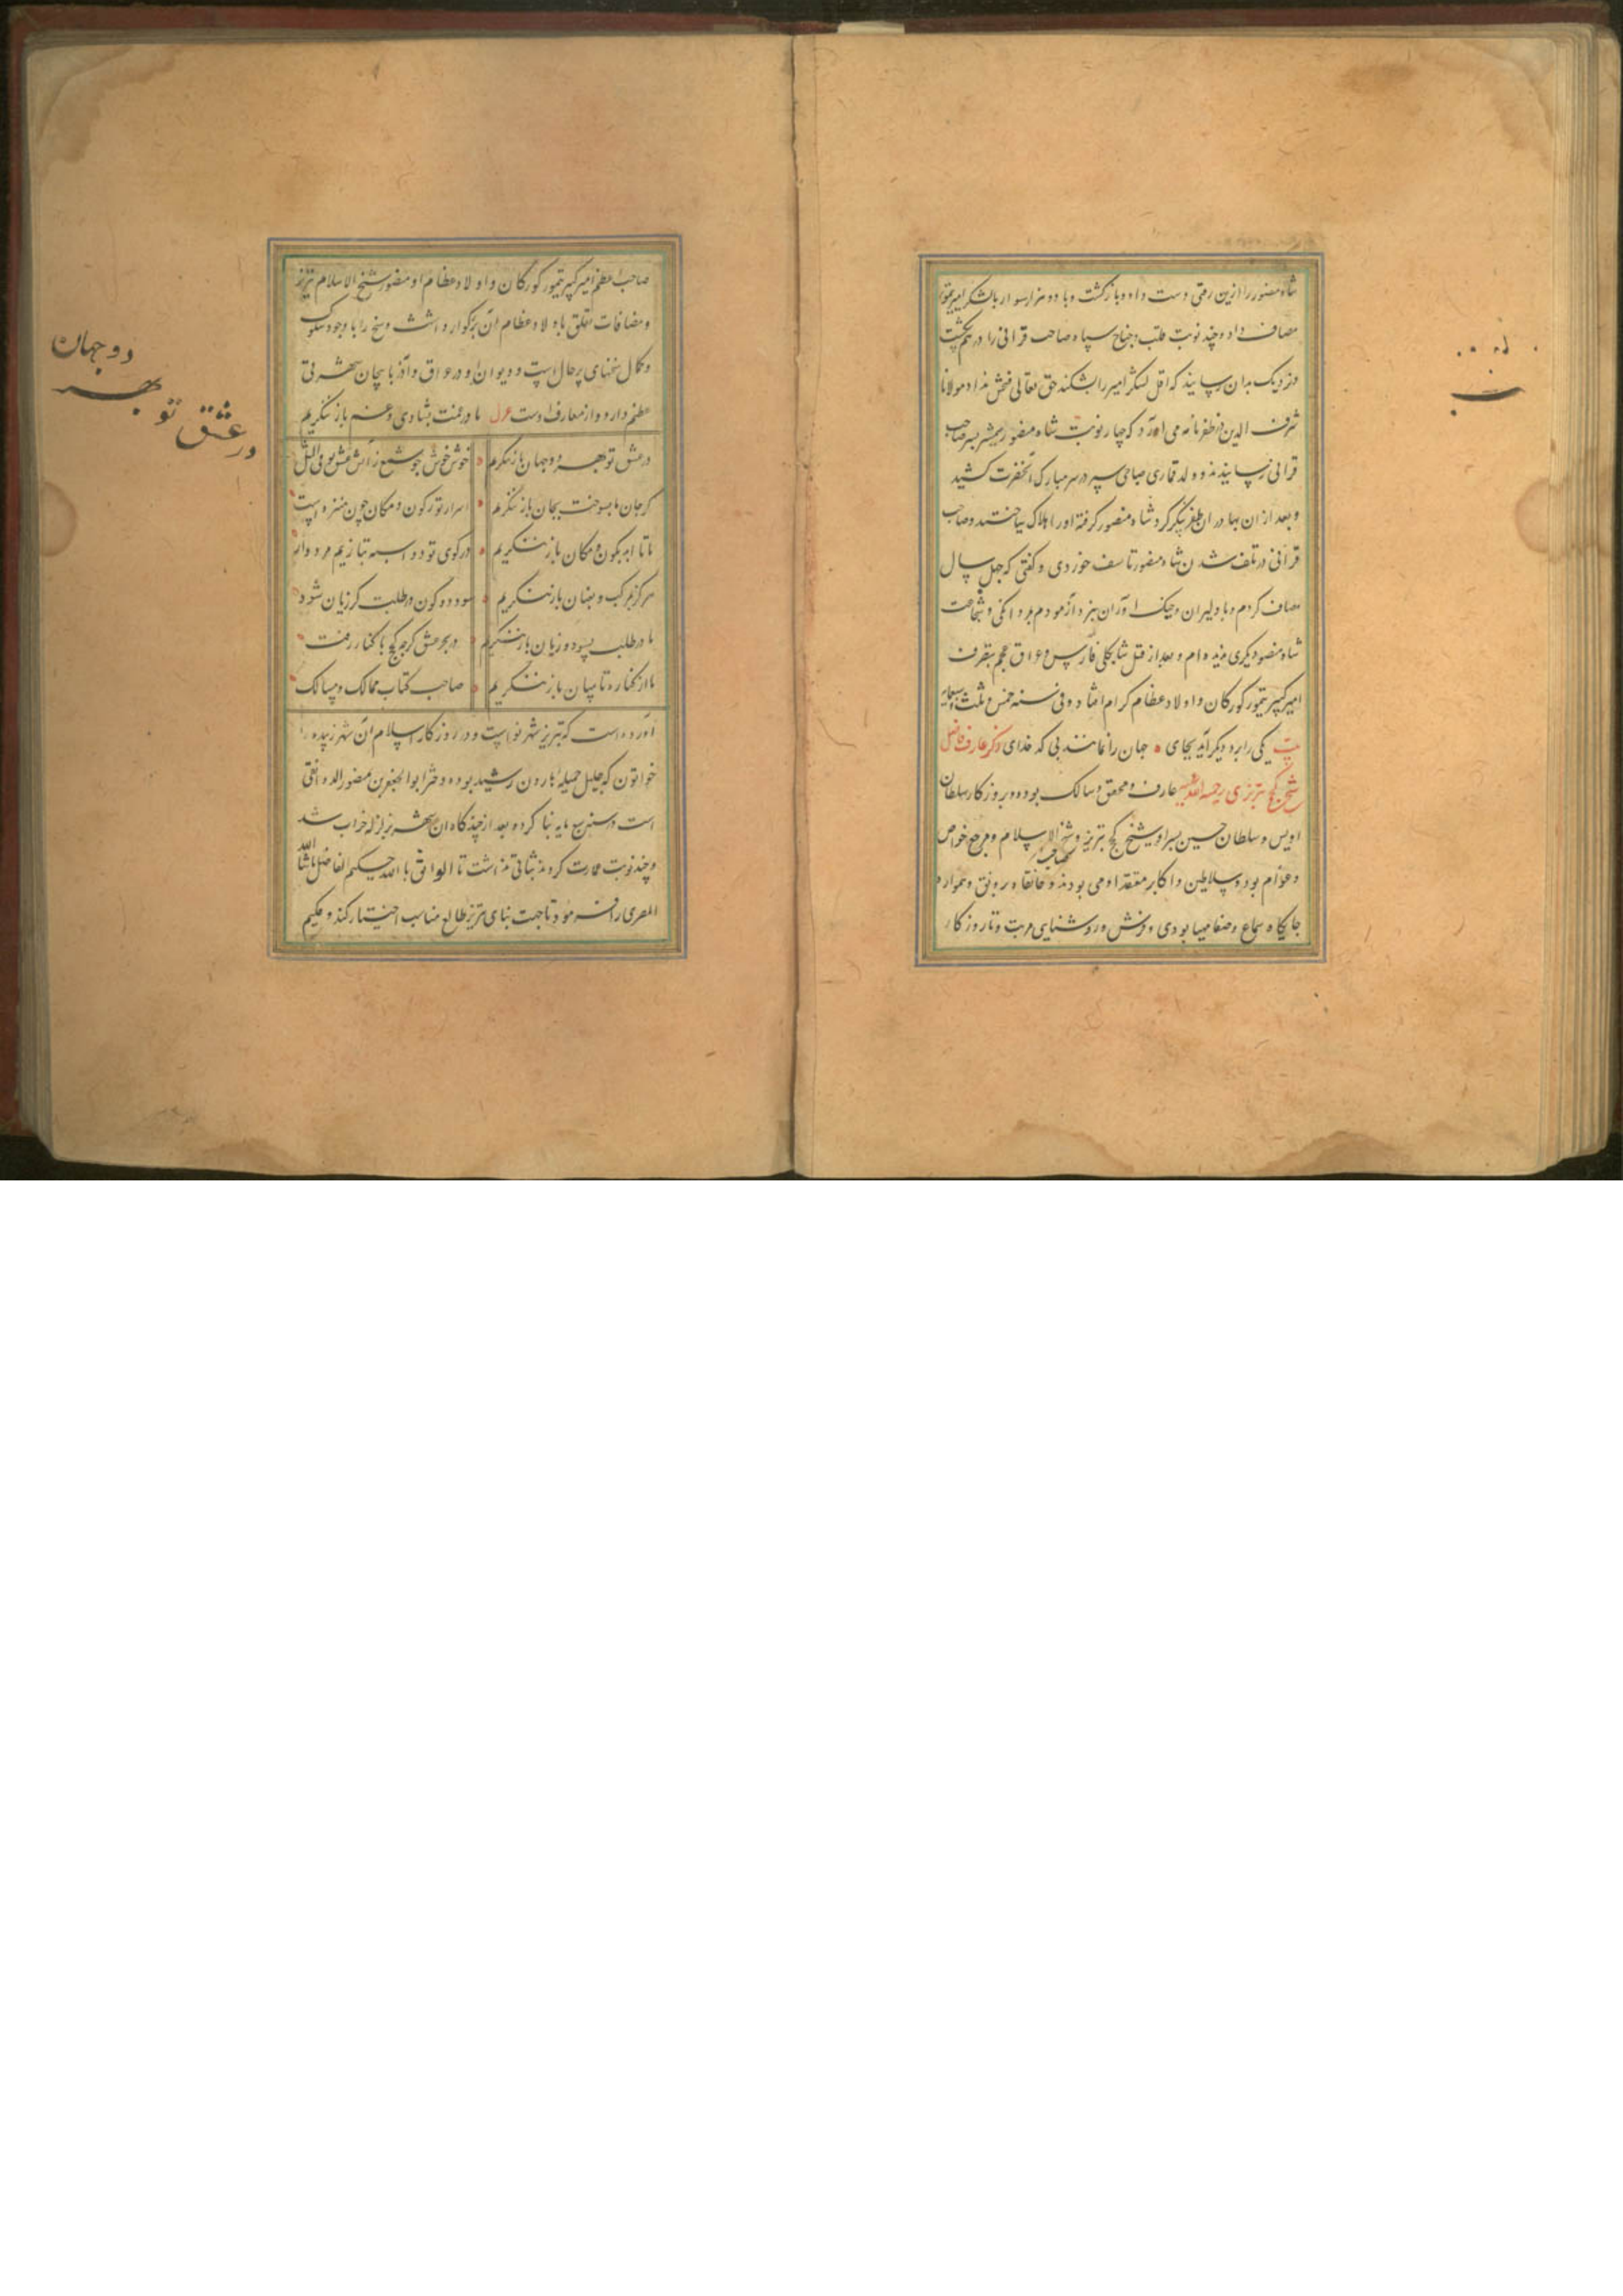 شاه منصور را ازین رقتی دست داد و بازگشت و با دو هزار سوار با لشکر امیر تیمور
مصاف داد و چند نوبت قلب و جناح سپاه صاحب قرانی را در هم
و نزدیک بدان رسانید که اقل لشکر امیر را بشکند حق تعالی نداد مولانا
شرف الدین در ظفرنامه می آورد که چهار نوبت شاه منصور شمشیر بسر صاحب
قرانی رسانیدند و ولد قماری سپر در سر مبارک آنحضرت کشید
و بعد از ان بهادران ظفر پیکر گرد شاه منصور گرفته او را هلاک ساختند و صاحب
قرانی در تلف شدن شاه منصور تاسف خوردی و گفتی که چهل سال
مصاف کردم و با دلیران و جنک اوران نبرد آزمودم بمردانکی و شجاعت
شاه منصور دیگری ندیده ام و بعد از قتل شاه ملک فارس و عراق عجم بتصرف
امیر کبیر تیمور کورکان و اولاد عظام کرام افتاد و فی سنه خمس و
بیت یکی را برد دیگر آید بجای جهان را نمانند بی کد خدای ذکر عارف فاضل
شیخ کجج تبریزی رحمة الله علیه عارف و محقق و سالک بوده و بروزکار سلطان
اویس و سلطان حسین پسر او شیخ کجج تبریز و شیخ الاسلام و مرجع خواص
و عوام بود و سلاطین و اکابر معتقد او می بودند و صاحب خانقاه با رونق و همواره
جایکاه سماع و صفا مهیا بودی و فرش و روشنایی مرتب و تا روزکار
صاحب اعظم امیر کبیر تیمور کورکان و اولاد عظام او منصور شیخ الاسلام تبریز
و مضافات تعلق باولاد عظام آن بزرگوار داشت و شیخ را با وجود سلوک
و کمال سخنهای پر حال است و دیوان او در عراق و آذربایجان شهرتی
عظیم دارد و از معارف اوست غزل ما در غمت بشادی و غم باز ننگریم
در عشق تو بهر دو جهان باز ننگریم خوش خوش چو شمع ز آتش عشق تو فی المثل
گر جان ما بسوخت بجان باز ننگریم اسرار تو ز کون و مکان چون منزه است
ما تا ابد بکون و مکان باز ننگریم در کوی تو دو اسبه بتازیم مردوار
هرگز بمرکب و بعنان باز ننگریم سود دو کون در طلبت گر زیان شود
ما در طلب بسود و زیان باز ننگریم در بحر عشق گرچه کجج با کنار رفت
ما از کناره تا بمیان باز ننگریم صاحب کتاب ممالک و مسالک
آورده است که تبریز شهر نو است و در روزکار اسلام آن شهر زبیده
خواتون که حلیله جمیله هارون رشید بوده و دختر ابوالجعفر بن منصور الدوانقی
است در سنه سبع مایه بنا کرده بعد از چند کاه آن شهر بزلزله خراب شد
و چند نوبت عمارت کردند ثباتی نداشت تا الواثق بالله حکیم الفاضل ماشاالله
المصری را فرمود تا جهت بنای تبریز طالع مناسب اختیار کند و حکیم
دو جهان
بهر
در عشق تو